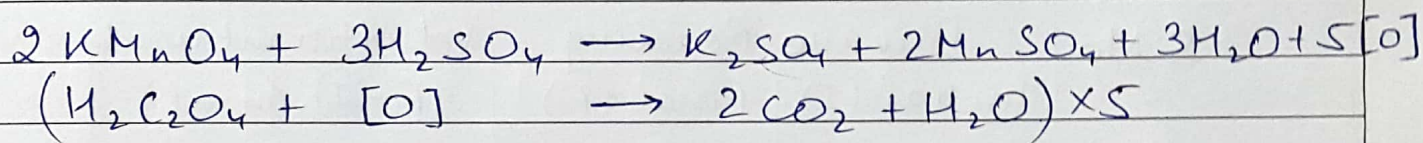 2KMnO₄ + 3H₂SO₄ → K₂SO₄ + 2MnSO₄ + 3H₂O + 5[O]
(H₂C₂O₄ + [O] → 2CO₂ + H₂O) × 5